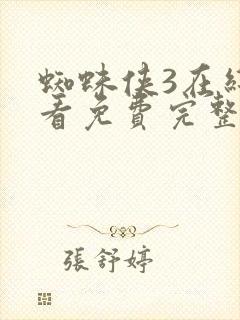 蜘蛛侠3在
看免費完整
張舒婷